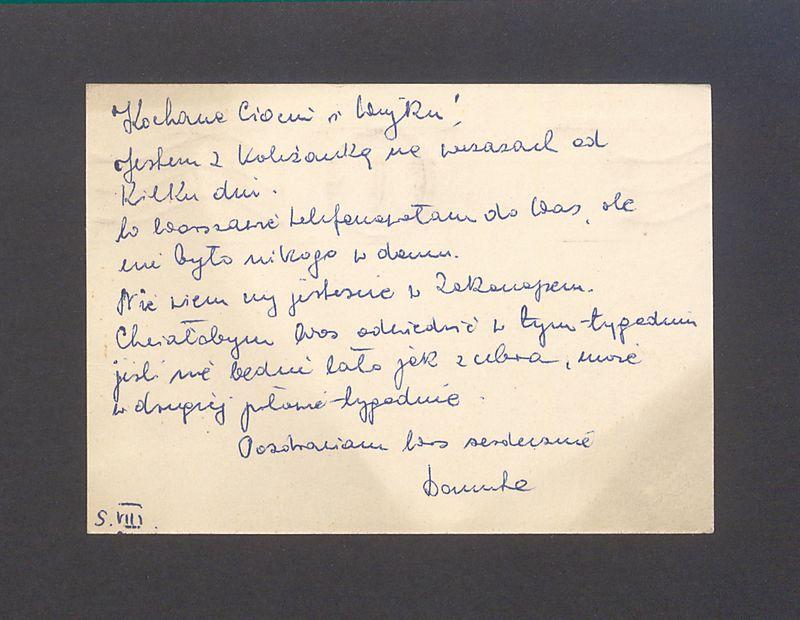 Kochane Ciociu i Wujku!
Jestem z koleżanką na wczasach od
kilku dni.
W Warszawie telefonowałam do Was, ale
nie było nikogo w domu.
Nie wiem czy jesteście w Zakopanem.
Chciałabym Was odwiedzić w tym tygodniu
jeśli nie będzie lało jak z cebra, może
w drugiej połowie tygodnia.
Pozdrawiam Was serdecznie
Danuta
5.VIII.